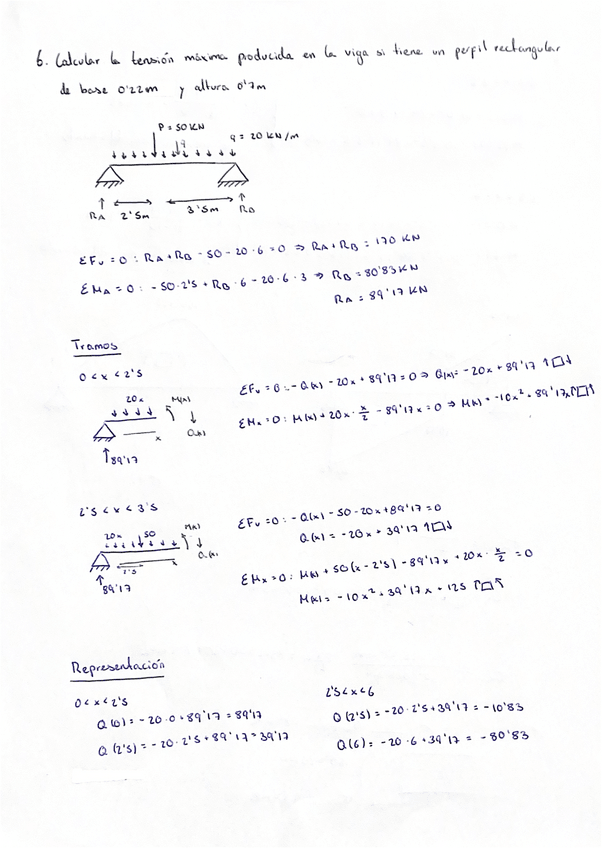 6. Calcular la tensión máxima producida en la viga si tiene un perfil rectangular
de base 0'22m y altura 0'7m
P = 50 KN
q
q = 20 KN/m
RA 2'5m 3'5m RB
ΣFv = 0 : RA + RB - 50 - 20·6 = 0 ⇒ RA + RB = 170 KN
ΣMA = 0 : - 50·2'5 + RB·6 - 20·6·3 ⇒ RB = 80'83 KN
RA = 89'17 KN
Tramos
0 < x < 2'5
20x M(x)
x Q(x)
89'17
ΣFv = 0 : - Q(x) - 20x + 89'17 = 0 ⇒ Q(x) = - 20x + 89'17 ↑□↓
ΣMx = 0 : M(x) + 20x · x/2 - 89'17x = 0 ⇒ M(x) = -10x² + 89'17x
2'5 < x < 3'5
20x 50 M(x)
x Q(x)
89'17
ΣFv = 0 : - Q(x) - 50 - 20x + 89'17 = 0
Q(x) = - 20x + 39'17 ↑□↓
ΣMx = 0 : M(x) + 50(x - 2'5) - 89'17x + 20x · x/2 = 0
M(x) = - 10x² + 39'17x + 125
Representación
0 < x < 2'5
Q(0) = - 20·0 + 89'17 = 89'17
Q(2'5) = - 20·2'5 + 89'17 = 39'17
2'5 < x < 6
Q(2'5) = - 20·2'5 + 39'17 = - 10'83
Q(6) = - 20·6 + 39'17 = - 80'83